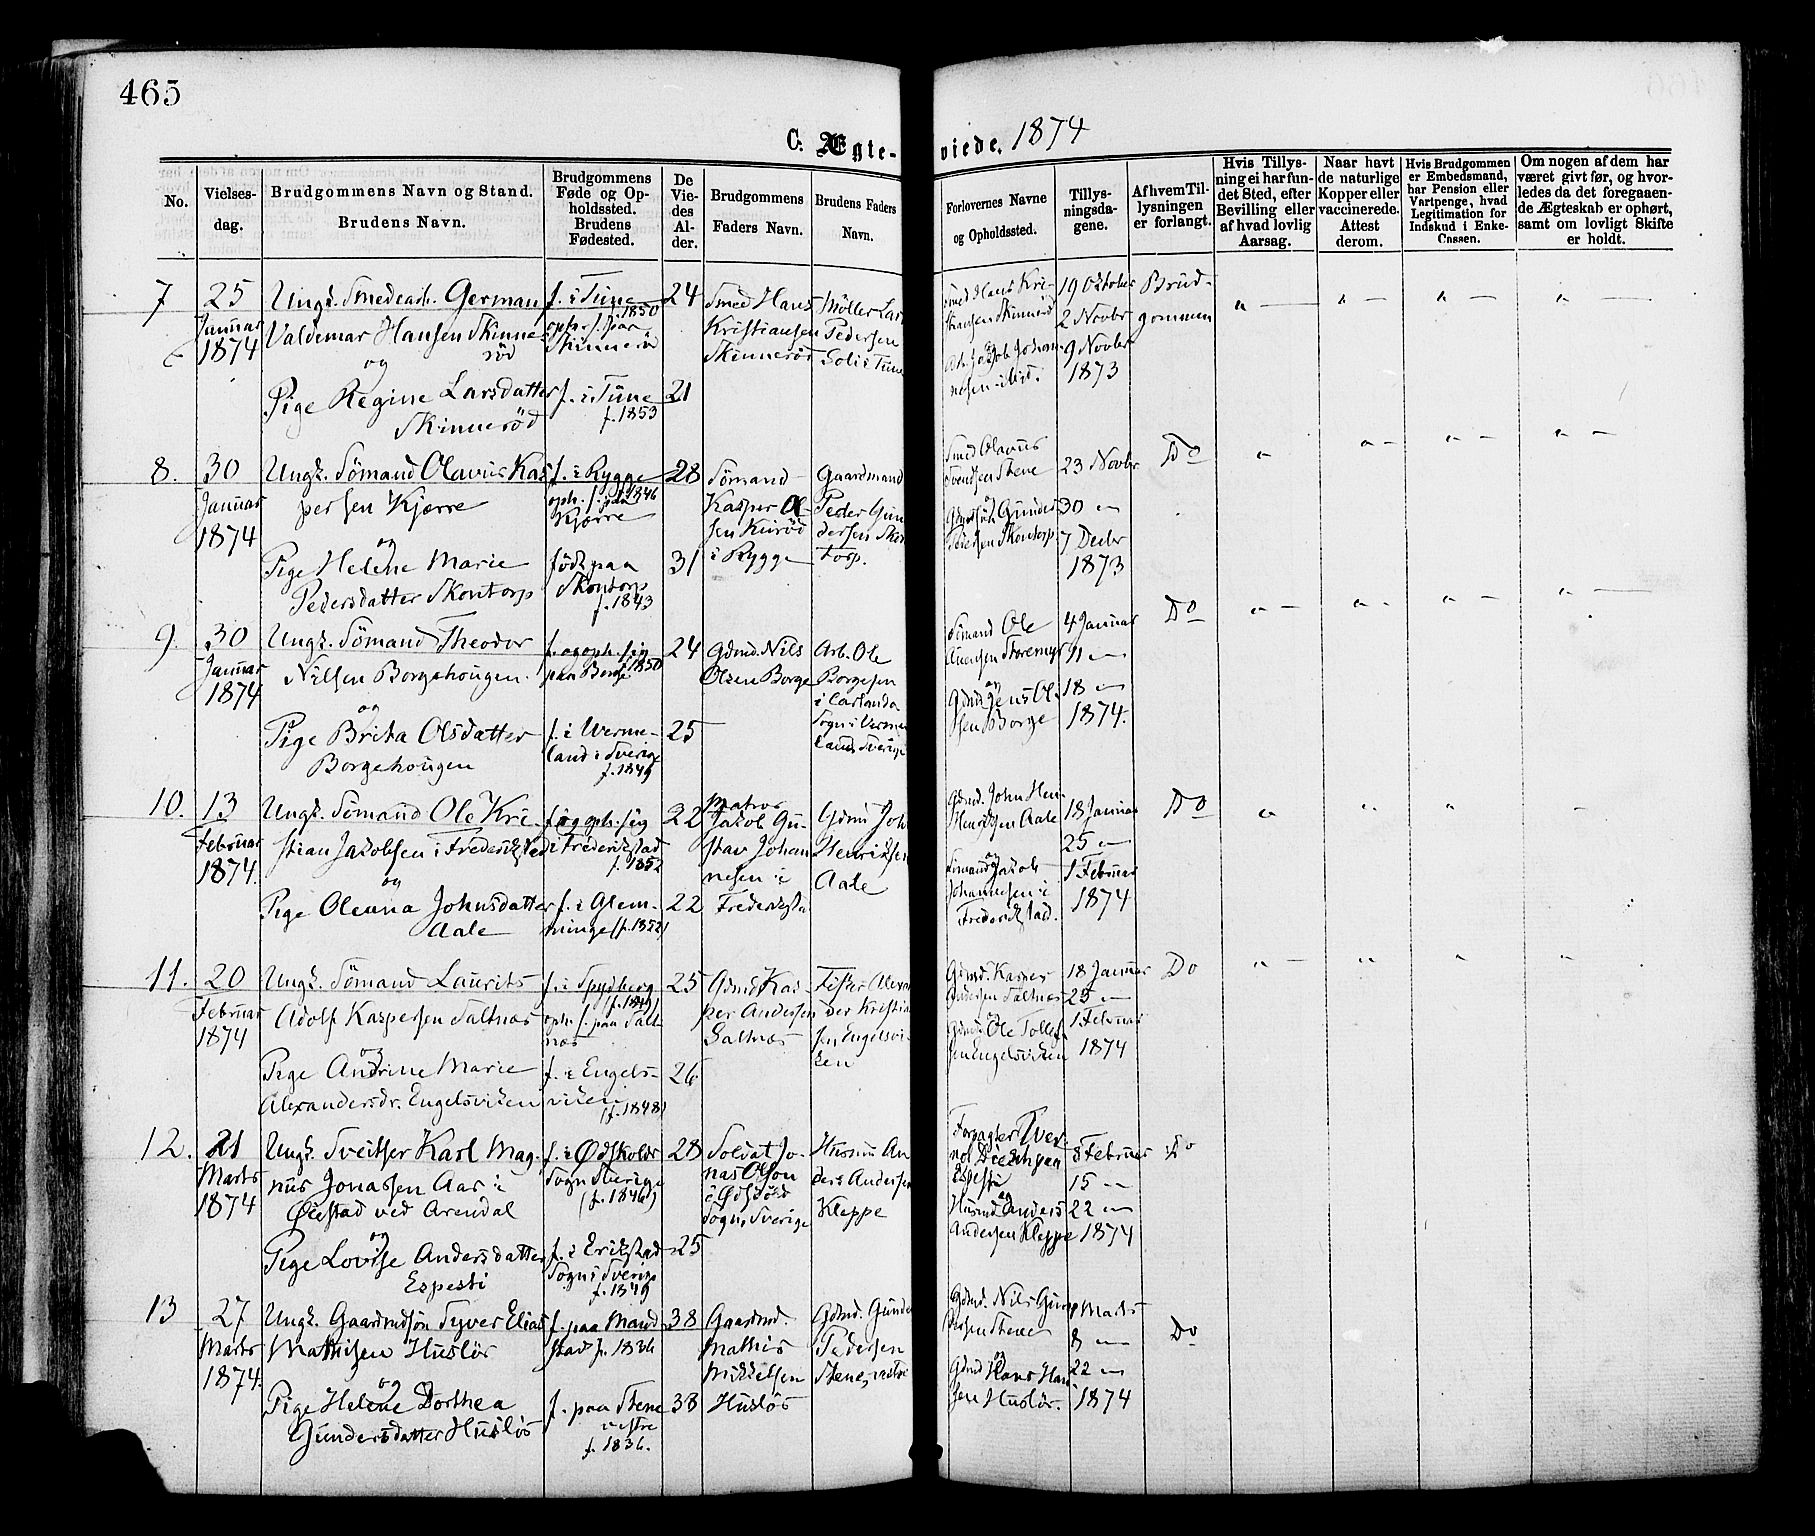 465
C. Ægte-viede. 1874
No.
Vielses-dag.
Brudgommens Navn og Stand.
Brudens Navn.
Brudgommens Føde og Op-holdssted.
Brudens Fødested.
De Vie-des Al-der.
Brudgommens Faders Navn.
Brudens Faders Navn.
Forlovernes Navne og Opholdssted.
Tillys-ningsda-gene.
Af hvem Til-lysningen er forlangt.
Hvis Tillys-ning ei har fun-det Sted, efter Bevilling eller af hvad lovlig Aarsag.
Naar havt de naturlige Kopper eller vaccinerede. Attest derom.
Hvis Brudgommen er Embedsmand, har Pension eller Vartpenge, hvad Legitimation for Indskud i Enke-Cassen.
Om nogen af dem har været givt før, og hvor-ledes da det foregaaen-de Ægteskab er ophørt, samt om lovligt Skifte er holdt.
7
25
Januar
1874
Ungk. Smedearb. German
Valdemar Hansen Skinne-
rød
og
Pige Regine Larsdatter
Skinnerød
f. i Tune
1850
oph. s. paa
Skinnerød
f. i Tune
f. 1853
24
21
Smed Hans
Kristiansen
Skinnerød
Møller Lars
Pedersen
Soli i Tune
Smed Hans Kri-
stiansen Skinnerød
Arb. Jakob Johan-
nesen ibid.
19 Oktober
2 Novbr
9 Novbr
1873
Brud-
gommen
8.
30
Januar
1874
Ungk. Sømand Olavus Kas
persen Kjærre
og
Pige Helene Marie
Pedersdatter Skontorp
f. i Rygge
oph. s. paa 1846
Kjærre
født paa
Skontorp
f. 1843
28
31
Sømand
Kasper Ol-
sen
i Rygge
Gaardmand
Peder Gun
dersen Skon
torp.
Smed Olavus
Svendsen Stene
og
Gdmdsøn Gunder
Pedersen Skontorp
23 Novbr
30 "
7 Decbr
1873
Do
9.
30
Januar
1874
Ungk. Sømand Theodor
Nilsen Borgehougen.
og
Pige Brita Olsdatter
Borgehougen
f. og oph. sig
paa Borge 1850
f. i Werme-
land i Sverige
f. 1849
24
25
Gdmd. Nils
Olsen Borge
Arb. Ole
Borgesen
i Carlanda
Sogn i Verme
land, Sverige
Sømand Ole
og
Gdmd Jens Ol-
sen Borge
4 Januar
11 "
18 "
1874.
Do
10.
13
Februar
1874.
Ungk. Sømand Ole Kri-
stian Jakobsen i Frederikstad
og
Pige Oleana Johnsdatter
Aale
f. og oph. sig
i Frederikstad
f. 1852
f. i Glem-
minge (f. 1852)
22
22
Matros
Jakob Gu-
stav Johan
nesen i
Frederiksta
Gdmd Joh
Henriksen
Aale
Gdmd. John Hen-
riksen Aale
og
Sømand Jakob
Johannesen i
Frederikstad.
18 Januar
25 "
1 Februar
1874
Do
11.
20
Februar
1874
Ungk. Sømand Laurits
Adolf Kaspersen Saltnæs
og
Pige Andrine Marie
Alexandersdr. Engelsviken
f. i Spydberg
(f. 1849)
oph. s. paa Salt-
næs
f. i Engels-
viken
(f. 1848)
25
26
Gdmd Kas-
per Andersen
Saltnæs
Fisker Alexan
der Kristian
sen Engelsvi-
ken
Gdmd. Kasper
Andersen Saltnæs
og
Gdmd. Ole Tollef
sen Engelsviken
18 Januar
25 "
1 Februar
1874
Do
12.
21
Marts
1874
Ungk. Sveitser Karl Mag-
nus Jonassen Aas i
Øiestad ved Arendal
og
Pige Lovise Andersdatter
Espesti
f. i Ødskölds
Sogn Sverige
(f. 1846)
f. i Erikstad
Sogn i Sverige
f. 1849
28
25
Soldat Jo-
nas Olson
i Ødskölds
Sogn, Sverige
Husmd An
ders Andersen
Kleppe
Forpagter Wer-
ner paa
Espesti
og
Husmd Anders
Andersen Kleppe
8 Februar
15 "
22 "
1874
Do
13
27
Marts
1874.
Ungk. Gaardmdsøn Syver Elias
Mathisen Husløs
og
Pige Helene Dorthea
Gundersdatter Husløs
f. paa Mand
stad f. 1836
f. paa Stene
vestre
f. 1836.
38
38
Gaardmd.
Mathis
Mikkelsen
Husløs
Gdmd. Gunde
Pedersen
Stene, vestre
Gdmd. Nils Gun-
dersen Stene
og
Gdmd Hans Han
sen Husløs.
Marts
8 "
22 "
1874
Do